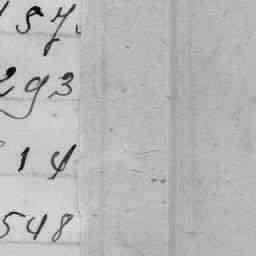 57
293
14
548